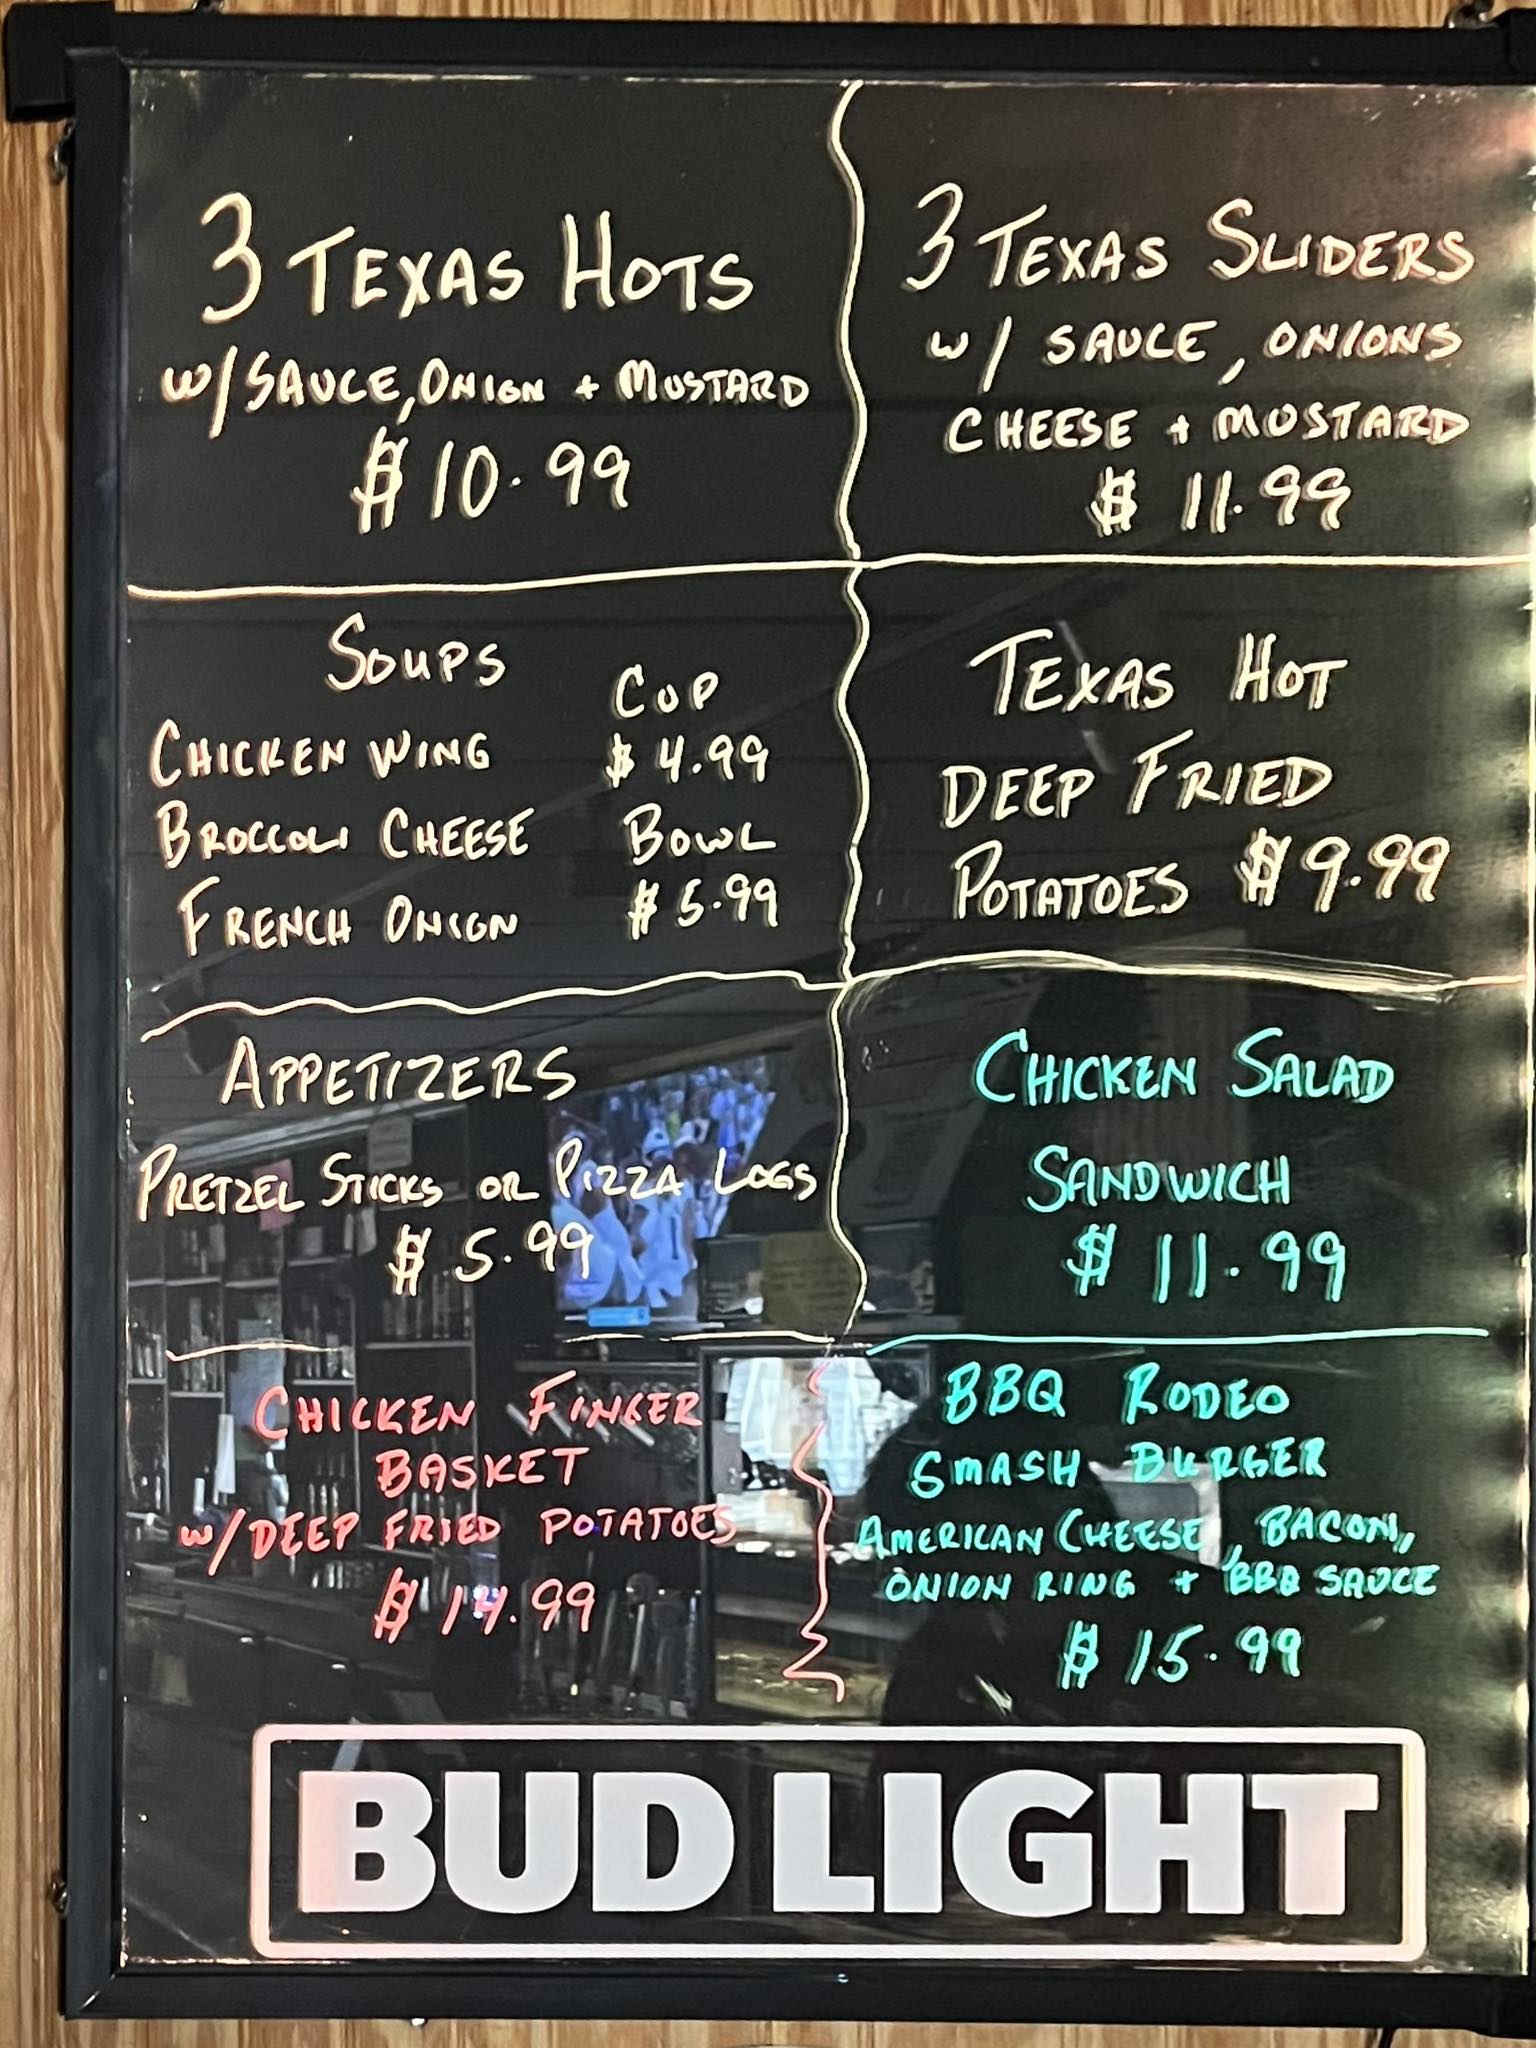 3 TEXAS HOTS
W/ SAUCE, ONION + MUSTARD
$10.99
3 TEXAS SLIDERS
W/ SAUCE, ONIONS
CHEESE + MUSTARD
$11.99
SOUPS
CUP
CHICKEN WING $4.99
BROCCOLI CHEESE BOWL
FRENCH ONION $5.99
TEXAS HOT
DEEP FRIED
POTATOES $9.99
APPETIZERS
PRETZEL STICKS OR PIZZA LOGS
$5.99
CHICKEN SALAD
SANDWICH
$11.99
CHICKEN FINGER
BASKET
W/ DEEP FRIED POTATOES
$14.99
BBQ RODEO
SMASH BURGER
AMERICAN CHEESE, BACON,
ONION RING + BBQ SAUCE
$15.99
BUD LIGHT